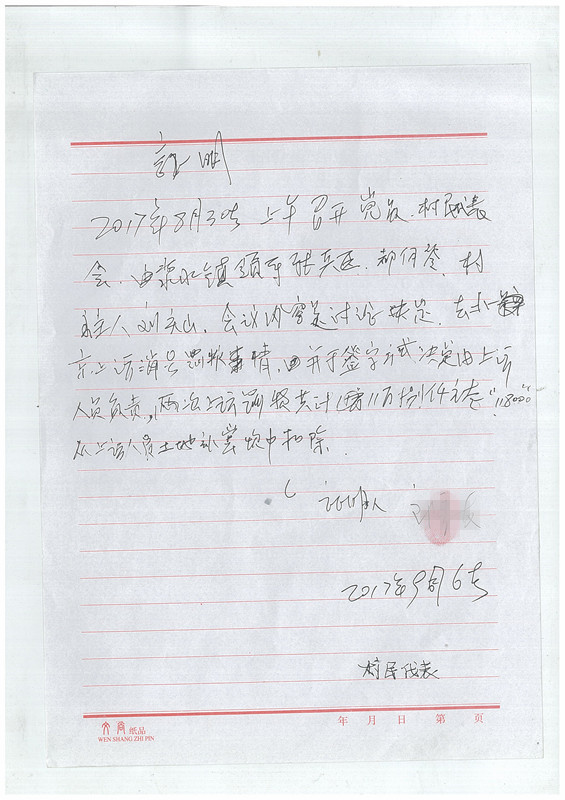 证明
2017年8月30号 上午召开党员、村民代表
会、由浆水镇领导张兵臣、郝何荃、村
主任刘天山、会议内容是讨论 去北
京上访消号罚款事情,由举手签字方式决定由上访
人员负责,两次上访罚款共计 11万捌仟元 "118000"
从上访人员土地补尝款中扣除.
证明人
2017年9月6号
村民代表
文尚 纸品
WEN SHANG ZHI PIN
年 月 日 第 页